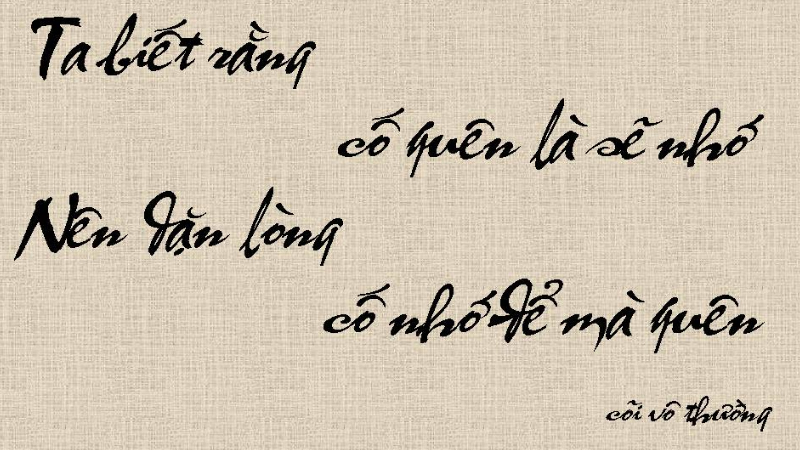 Ta biết rằng
cố quên là sẽ nhớ
Nên dặn lòng
cố nhớ để mà quên
cõi vô thường